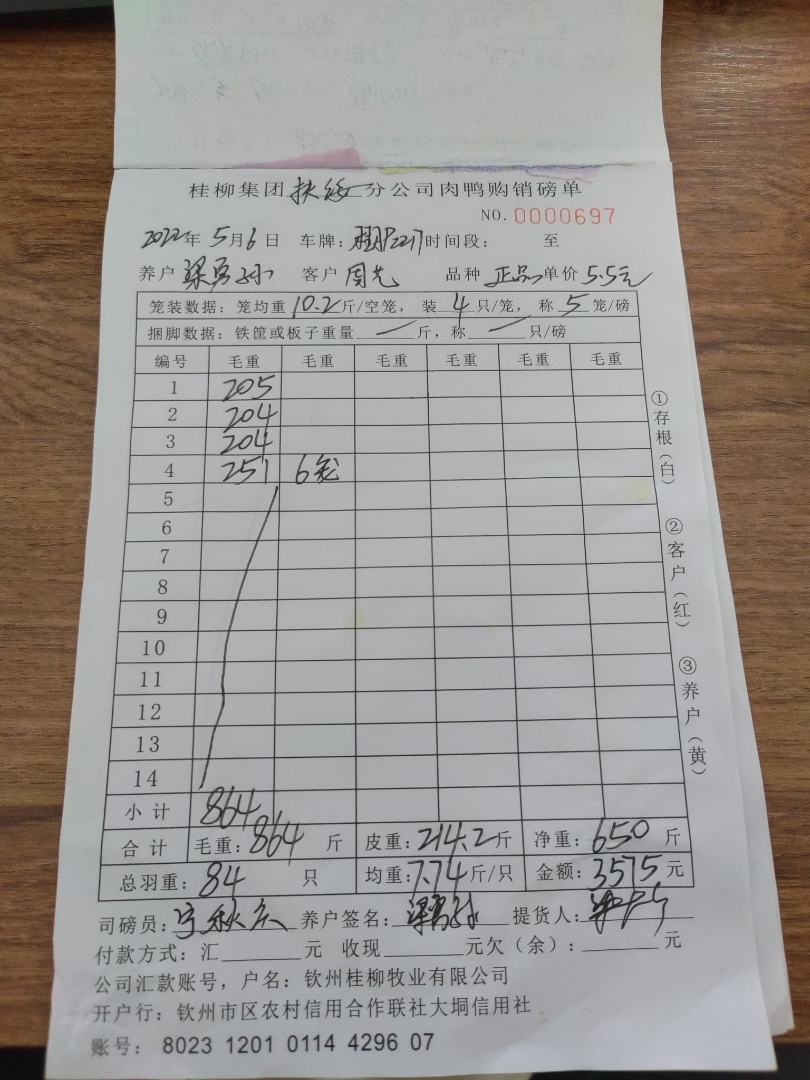 桂柳集团扶绥分公司肉鸭购销磅单
NO.0000697
2022年5月6日 车牌: 时间段: 至
养户 梁勇孙 客户 周先 品种 正品 单价 5.5元
笼装数据: 笼均重10.2斤/空笼, 装4只/笼, 称5笼/磅
捆脚数据: 铁筐或板子重量—斤, 称—只/磅
编号 毛重 毛重 毛重 毛重 毛重 毛重
1 205
2 204
3 204
4 251 6笼
5
6
7
8
9
10
11
12
13
14
小计 864
合计 毛重: 864 斤 皮重: 214.2斤 净重: 650 斤
总羽重: 84 只 均重: 7.74斤/只 金额: 3575元
司磅员: 养户签名: 梁勇孙 提货人:
付款方式: 汇______元 收现______元欠(余): ______元
公司汇款账号, 户名: 钦州桂柳牧业有限公司
开户行: 钦州市区农村信用合作联社大垌信用社
账号: 8023 1201 0114 4296 07
①存根(白)
②客户(红)
③养户(黄)